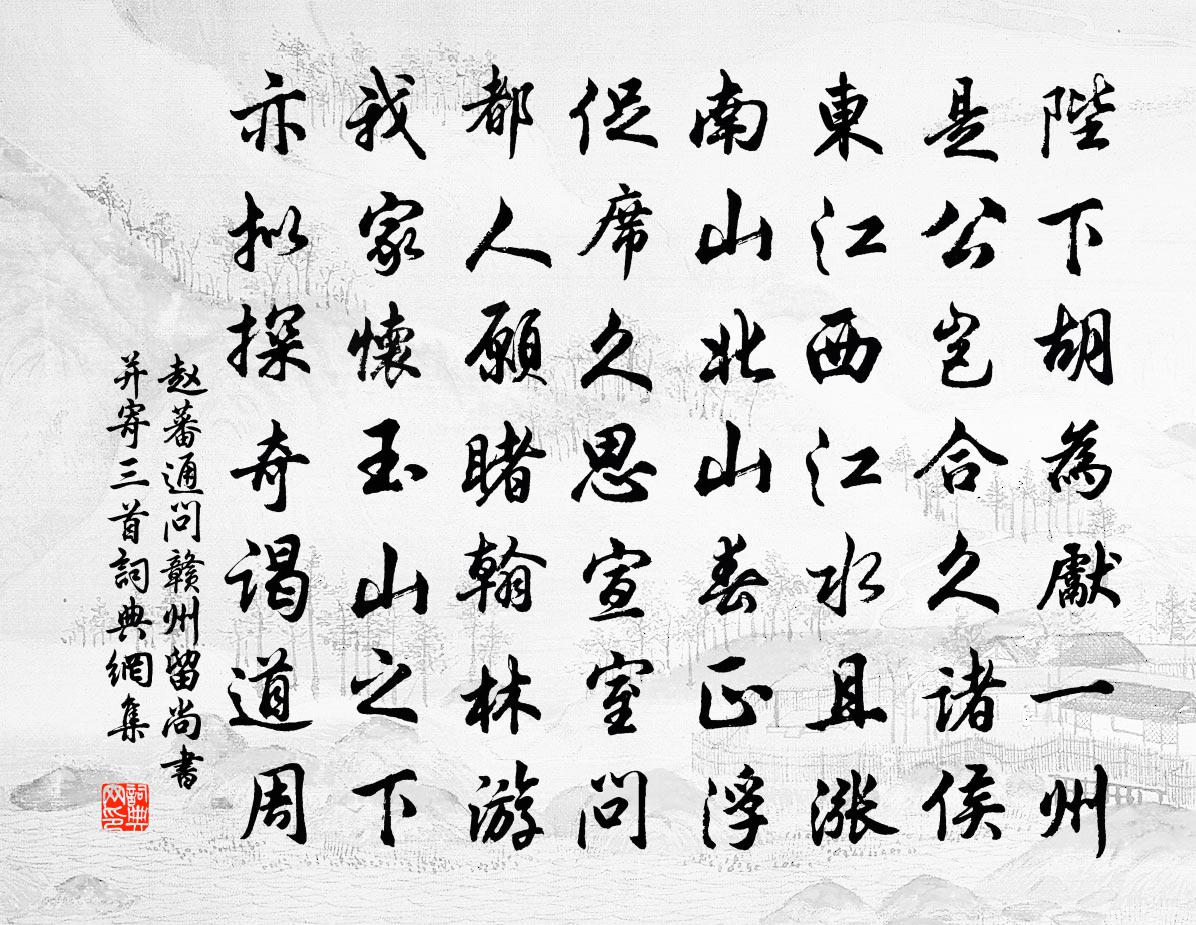 陛下胡為獻一州
是公豈合久諸侯
東江西江水且漲
南山北山春正浮
促席久思宣室問
都人願睹翰林游
我家懷玉山之下
亦擬探奇謁道周
赵蕃通問贛州留尚書
并寄三首詞典網集
詞典网印